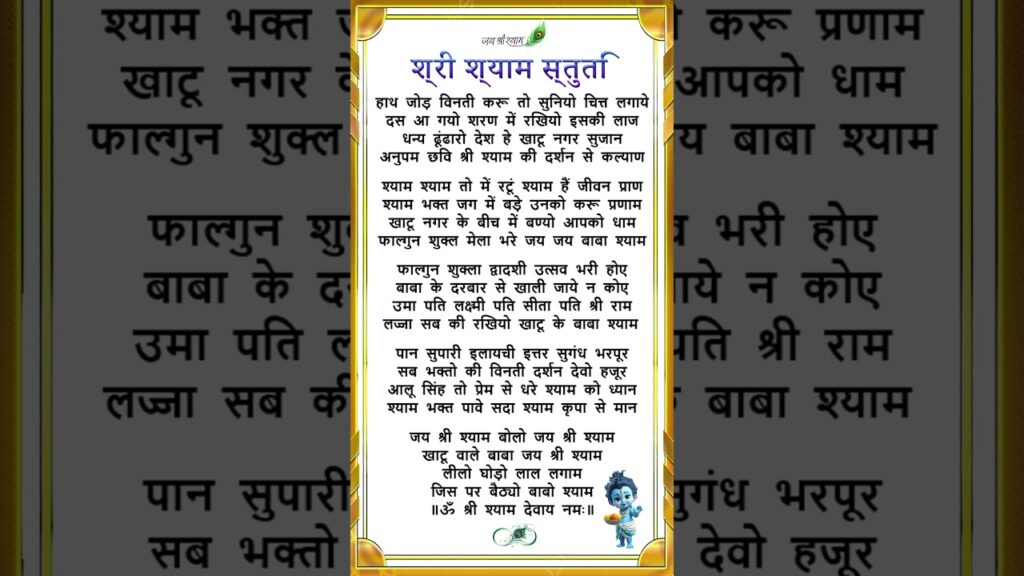 जय श्री श्याम
श्री श्याम स्तुति
हाथ जोड़ विनती करू तो सुनियो चित्त लगाये
दस आ गयो शरण में रखियो इसकी लाज
धन्य ढूंढारो देश हे खाटू नगर सुजान
अनुपम छवि श्री श्याम की दर्शन से कल्याण
श्याम श्याम तो में रटूं श्याम हैं जीवन प्राण
श्याम भक्त जग में बड़े उनको करू प्रणाम
खाटू नगर के बीच में बण्यो आपको धाम
फाल्गुन शुक्ल मेला भरे जय जय बाबा श्याम
फाल्गुन शुक्ला द्वादशी उत्सव भरी होए
बाबा के दरबार से खाली जाये न कोए
उमा पति लक्ष्मी पति सीता पति श्री राम
लज्जा सब की रखियो खाटू के बाबा श्याम
पान सुपारी इलायची इत्तर सुगंध भरपूर
सब भक्तो की विनती दर्शन देवो हजूर
आलू सिंह तो प्रेम से धरे श्याम को ध्यान
श्याम भक्त पावे सदा श्याम कृपा से मान
जय श्री श्याम बोलो जय श्री श्याम
खाटू वाले बाबा जय श्री श्याम
लीलो घोड़ो लाल लगाम
जिस पर बैठ्यो बाबो श्याम
॥ॐ श्री श्याम देवाय नमः॥